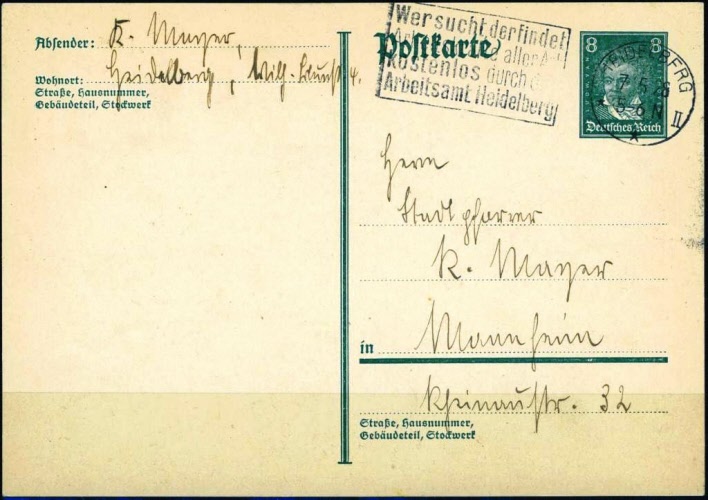 Absender: K. Mayer,
Wohnort: Heidelberg,
Straße, Hausnummer,
Gebäudeteil, Stockwerk
Postkarte
Wer sucht der findet
aller Art
kostenlos durch
Arbeitsamt Heidelberg
8 8
Deutsches Reich
HEIDELBERG
7.5.28
5-6 N
II
Herrn
Stadtpfarrer
K. Mayer
in Mannheim
Rheinaustr. 32
Straße, Hausnummer,
Gebäudeteil, Stockwerk